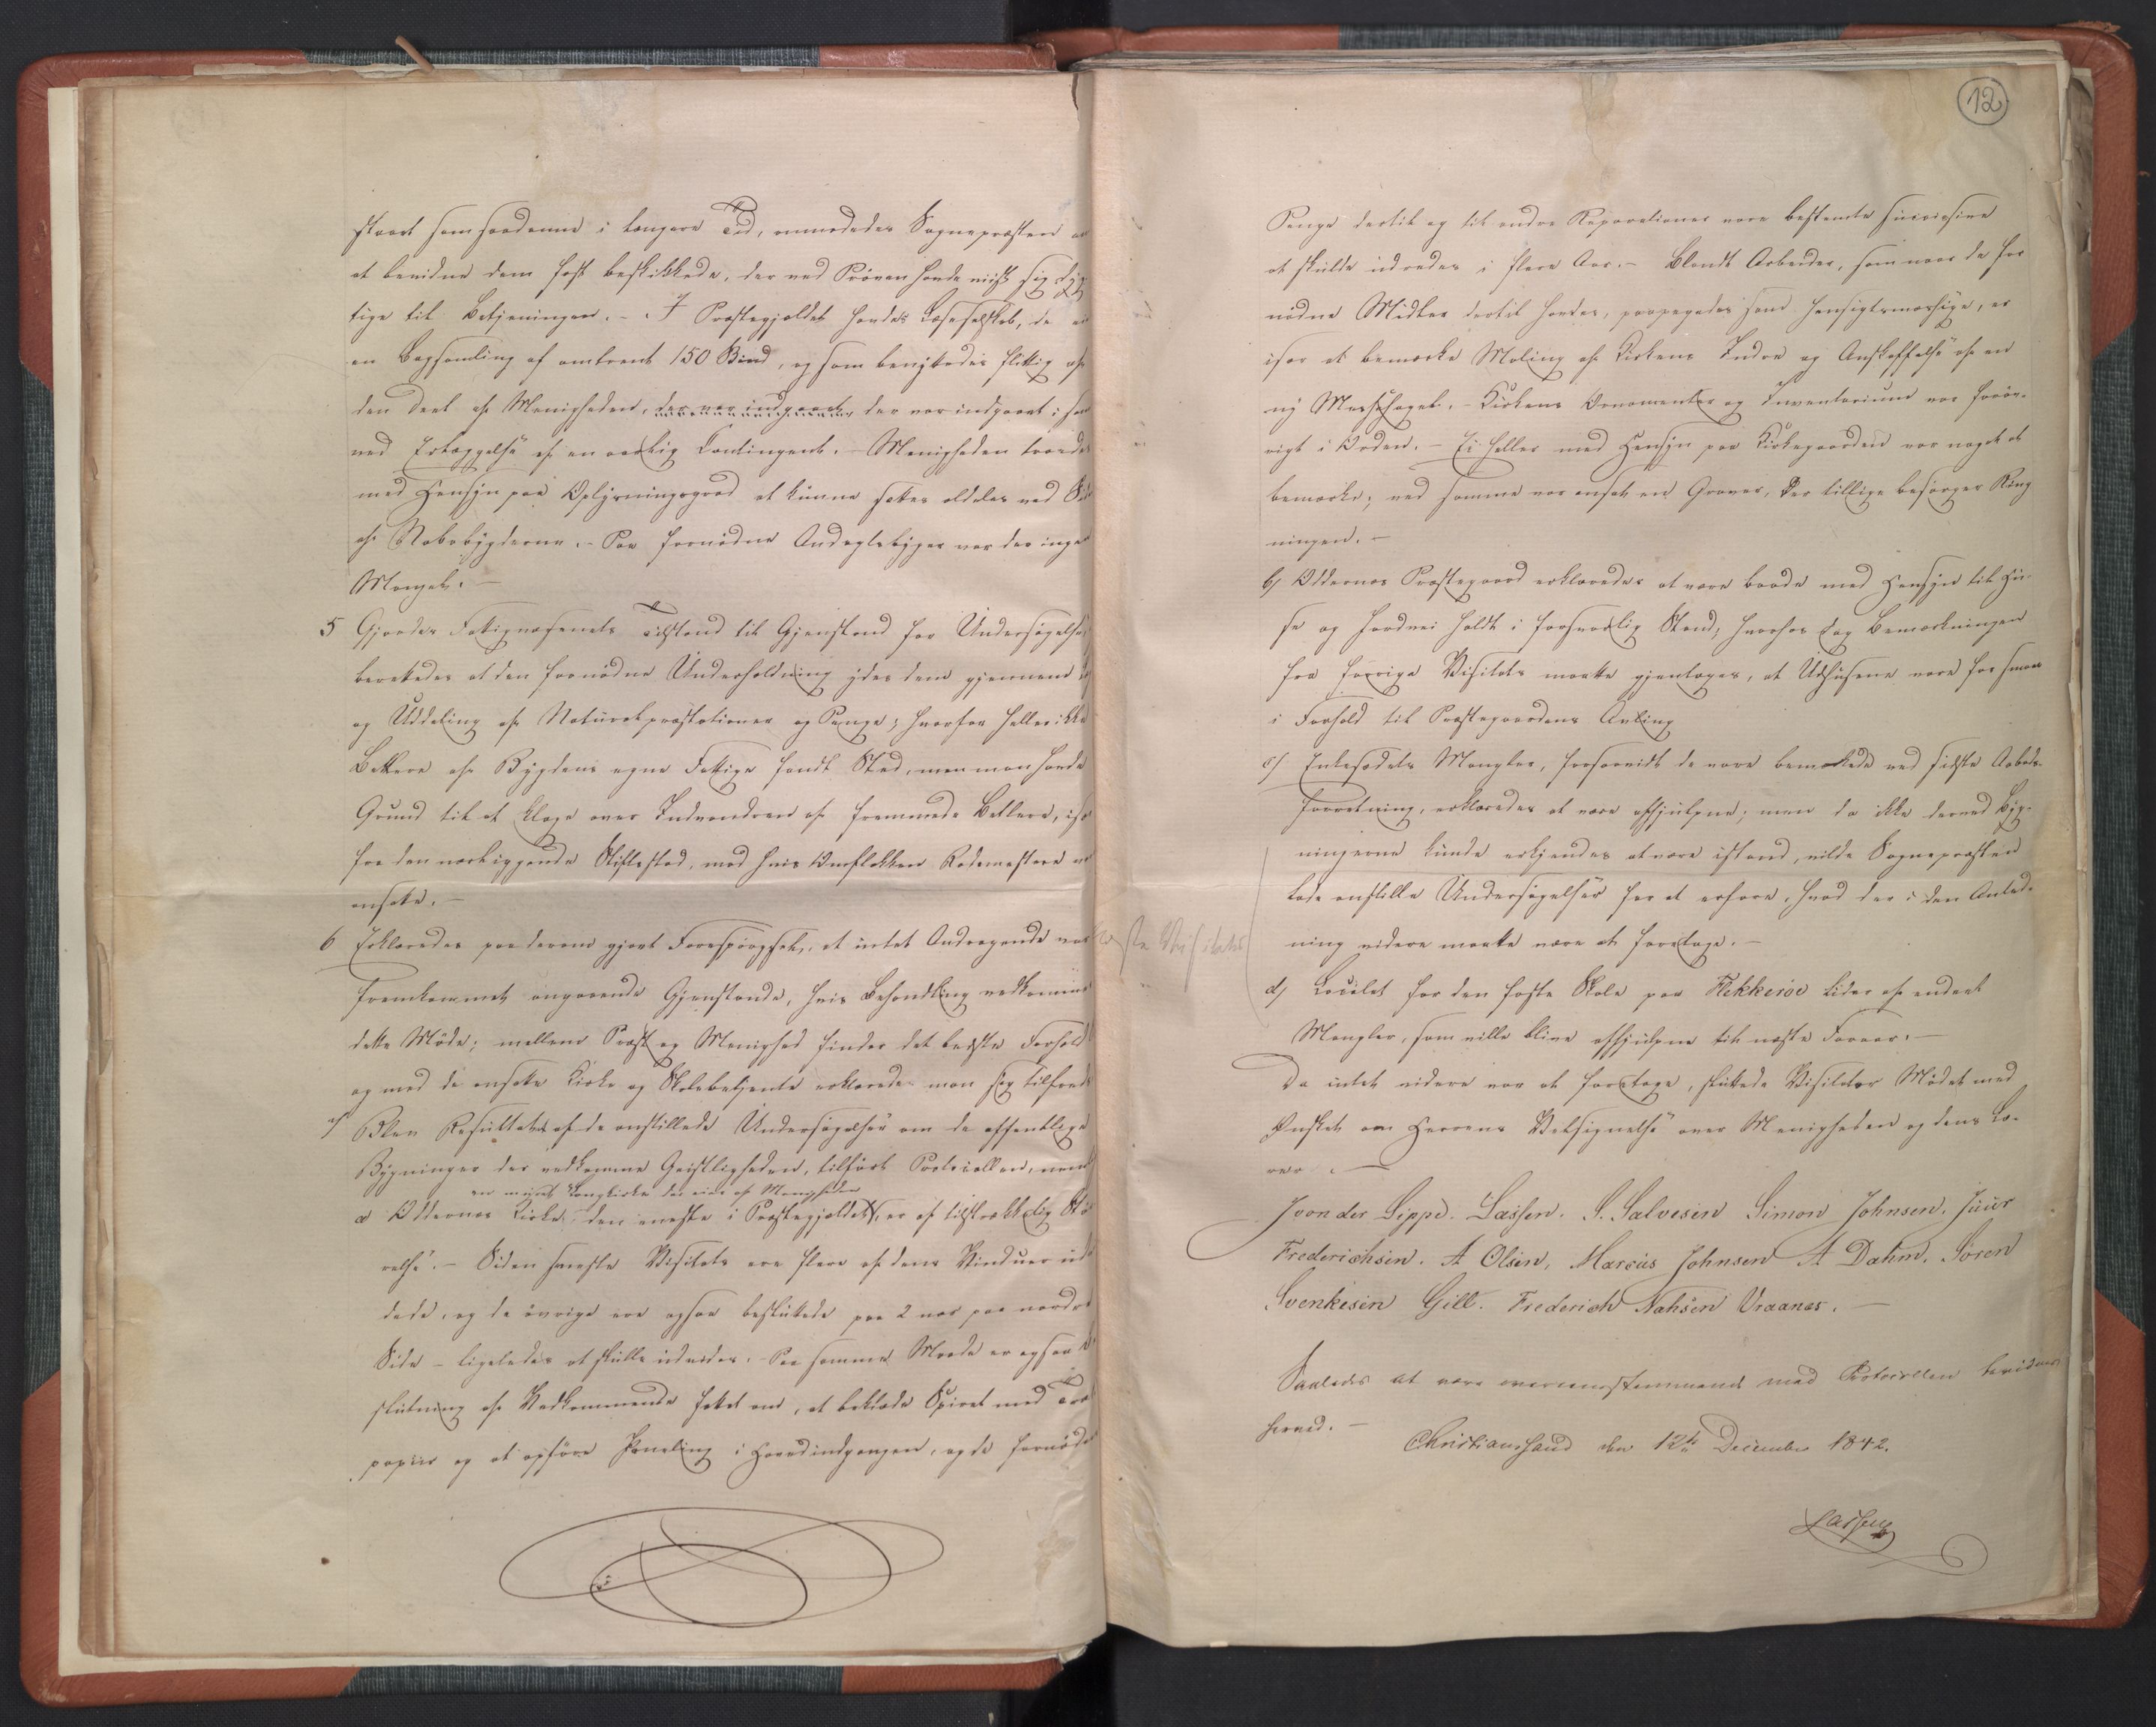 staaet som saadanne i længere Tid, anmodedes Sognepræsten om
at bevidne dem fast beskikkede, der ved Prøven havde viist sig dyg-
tige til Betjeningen. – I Præstegjeldet havdes Læseselskab, de
en Bogsamling af omtrent 150 Bind, og som benyttedes flittig af
den Deel af Menigheden, der var indgaaet, der var indgaaet i
ved Erlæggelse af en aarlig Contingent. – Menigheden troedes
med Hensyn paa Oplysningsgrad at kunne sættes aldeles ved Side
af Nabobygderne. – Paa fornødne Andagtsbøger var der ingen
Mangel. –
5 Gjordes Fattigvæsenets Tilstand til Gjenstand for Undersøgelse
berettedes at den fornødne Underholdning ydes dem gjennem
og Uddeling af Naturalpræstationer og Penge; hvorfor heller ikke
Betlere af Bygdens egne Fattige fandt Sted, men man havde
Grund til at klage over Indvandren af fremmede Betlere, især
fra den nærliggende Stiftsstad, mod hvis Omflakken Rodemestere var
ansatte. –
6 Erklæredes paa derom gjort Forespørgsel, at intet Andragende var
fremkommet angaaende Gjenstande, hvis Behandling vedkommer
dette Møde; mellem Præst og Menighed finder det bedste Forhold
og med de ansatte Kirke og Skolebetjente erklærede man sig tilfreds
7) Blev Resultatet af de anstillede Undersøgelser om de offentlige
Bygninger der vedkomme Geistligheden, tilført Protocollen, nemlig
en muret Langkirke der eies af Menigheden
a Oddernes Kirke, den eneste i Præstegjeldet, er af tilstrækkelig Stør
relse. – Siden seneste Visitats ere flere af dens Vinduer ud
dede, og de øvrige ere ogsaa besluttede paa 2 nær paa nordre
Side – ligeledes at skulle udvides. Paa samme Maade er ogsaa Be
slutning af Vedkommende fattet om, at beklæde Spiret med Træ
papir og at opføre Paneling i Hovedindgangen, og de fornødne
12
Penge dertil og til andre Reparationer vare bestemte successive
at skulde udredes i flere Aar. – Blandt Arbeider, som naar de for
nødne Midler dertil havdes, paapegedes som hensigtsmæssige, er
især at bemærke Maling af Kirkens Indre og Anskaffelse af en
ny Messehagel. – Kirkens Ornamenter og Inventarium var forøv-
rigt i Orden. – Ei heller med Hensyn paa Kirkegaarden var noget at
bemærke; ved samme var ansat en Graver, der tillige besørger Ring
ningen. –
b) Oddernes Præstegaard erklæredes at være baade med Hensyn til Hu-
se og Jordvei holdt i forsvarlig Stand; hvorhos dog Bemærkningen
fra forrige Visitats maatte gjentages, at Udhusene vare for smaae
i Forhold til Præstegaardens Avling
c) Enkesædets Mangler, forsaavidt de vare bemærkede ved sidste Aabods-
forretning, erklæredes at være afhjulpne; men da ikke derved Byg-
ningerne kunde erkjendes at være istand, vilde Sognepræsten
lade anstille Undersøgelser for at erfare, hvad der i den Anled-
ning videre maatte være at foretage. –
ste Visitats
d) Localet for den faste Skole paa Flekkerøe lider af endeel
Mangler, som ville blive afhjulpne til næste Foraar. –
Da intet videre var at foretage, sluttede Visitator Mødet med
Ønsket om Herrens Velsignelse over Menigheden og dens Læ-
rer. –
J von der Lippe. Lassen. S. Salvesen Simon Johnsen. Juur
Frederichsen. A Olsen, Marcus Johnsen A Dahm. Søren
Svenkesen Gill. Frederich Nahsen Vraanes. –
Saaledes at være overeensstemmende med Protocollen bevidnes
herved. –
Christianssand den 12te December 1842.
Lassen